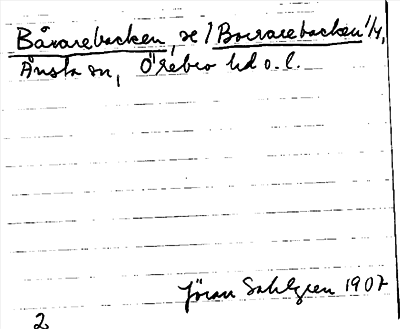 Båvarebacken, se /Bovarebacken 1/4,
Ånsta sn, Örebro hd o. l.
Jöran Sahlgren 1907
2